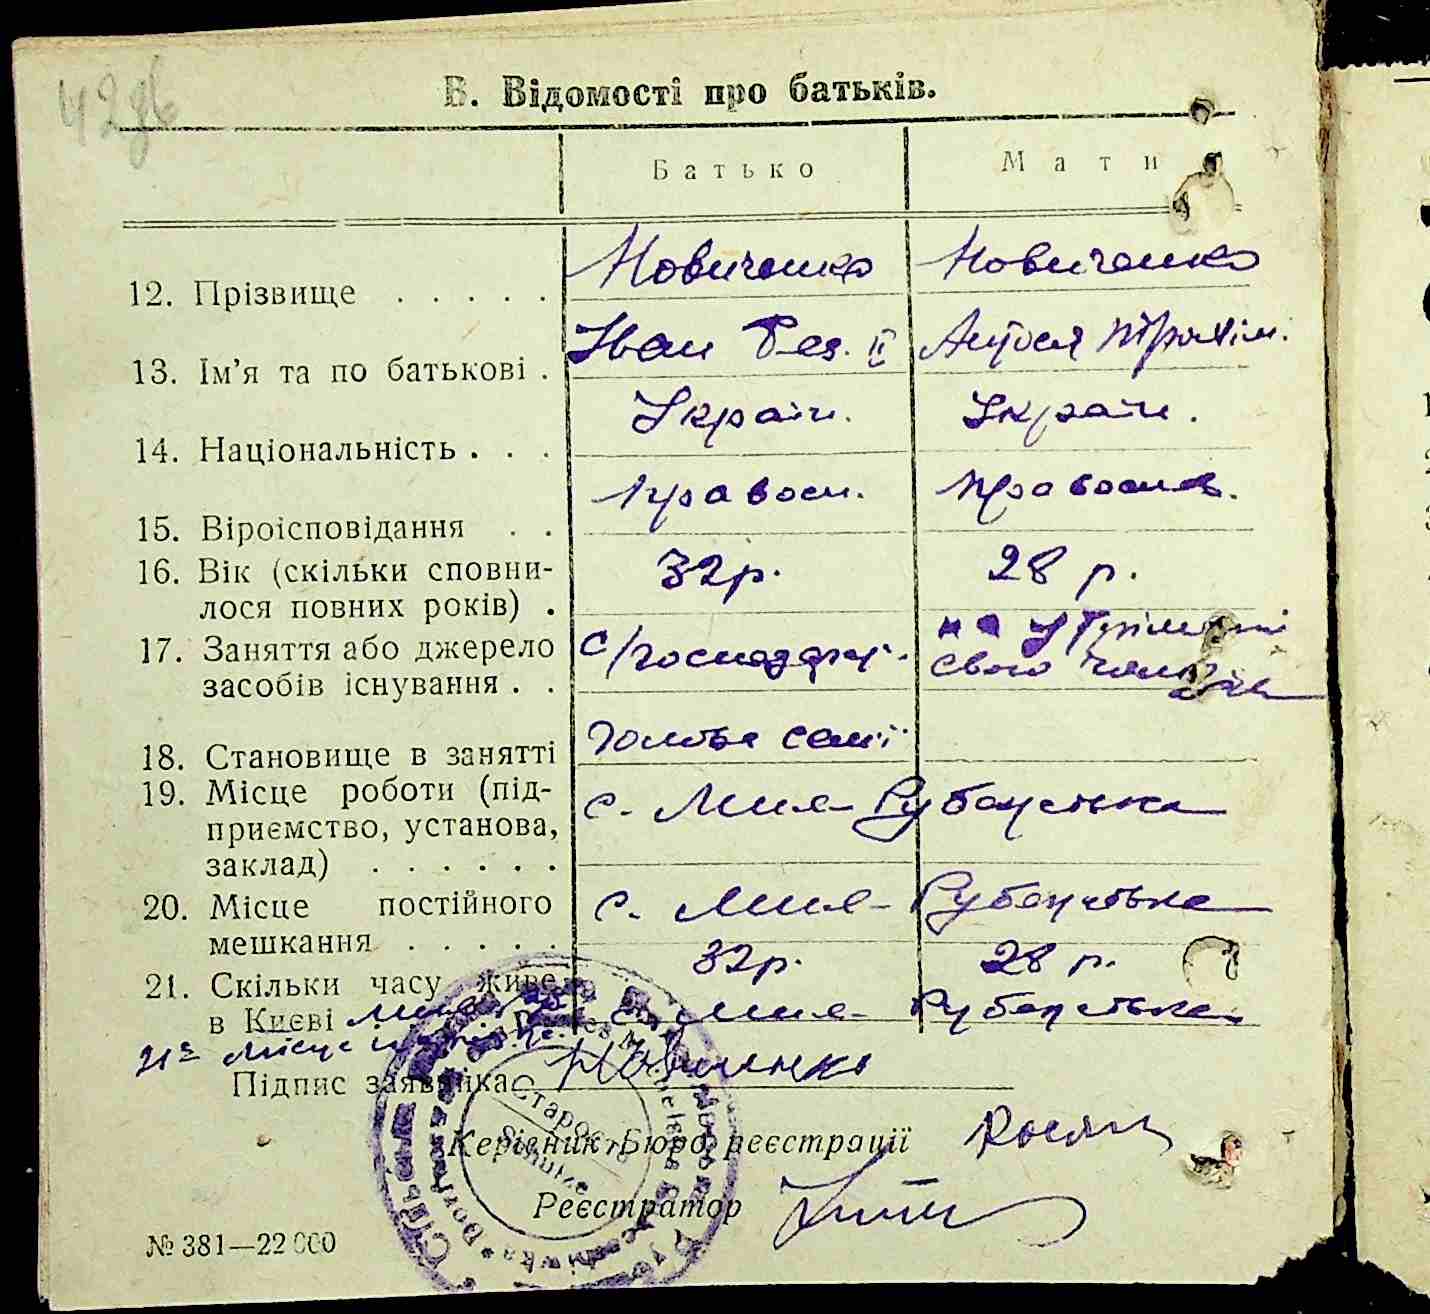 42зв
В. Відомості про батьків.
Батько Мати
12. Прізвище . . . . . Новиченко Новиченко
13. Ім’я та по батькові . Іван Фед. ІІ Антося Трохім.
14. Національність . . . Україн. Україн.
15. Віроісповідання . . Правосл. Православ.
16. Вік (скільки сповни-
лося повних років) . 32 р. 28 р.
17. Заняття або джерело с/господар. на утриманні
засобів існування . . свого чоловіка
18. Становище в занятті голова семії
19. Місце роботи (під-
приємство, установа, с. Мика-Рубанська
заклад) . . . . . .
20. Місце постійного
мешкання . . . . . с.
21. Скільки часу живе 32 р. 28 р.
в Києві
Підпис заявника Новиченко
Керівник Бюро реєстрації
Реєстратор
Староста
№ 381—22 000